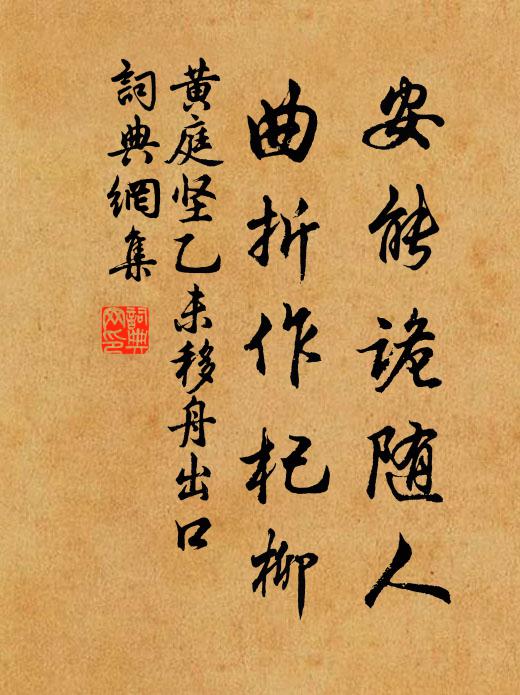 安能诡随人
曲折作杞柳
黄庭坚乙未移舟出口
詞典網集
詞典网印